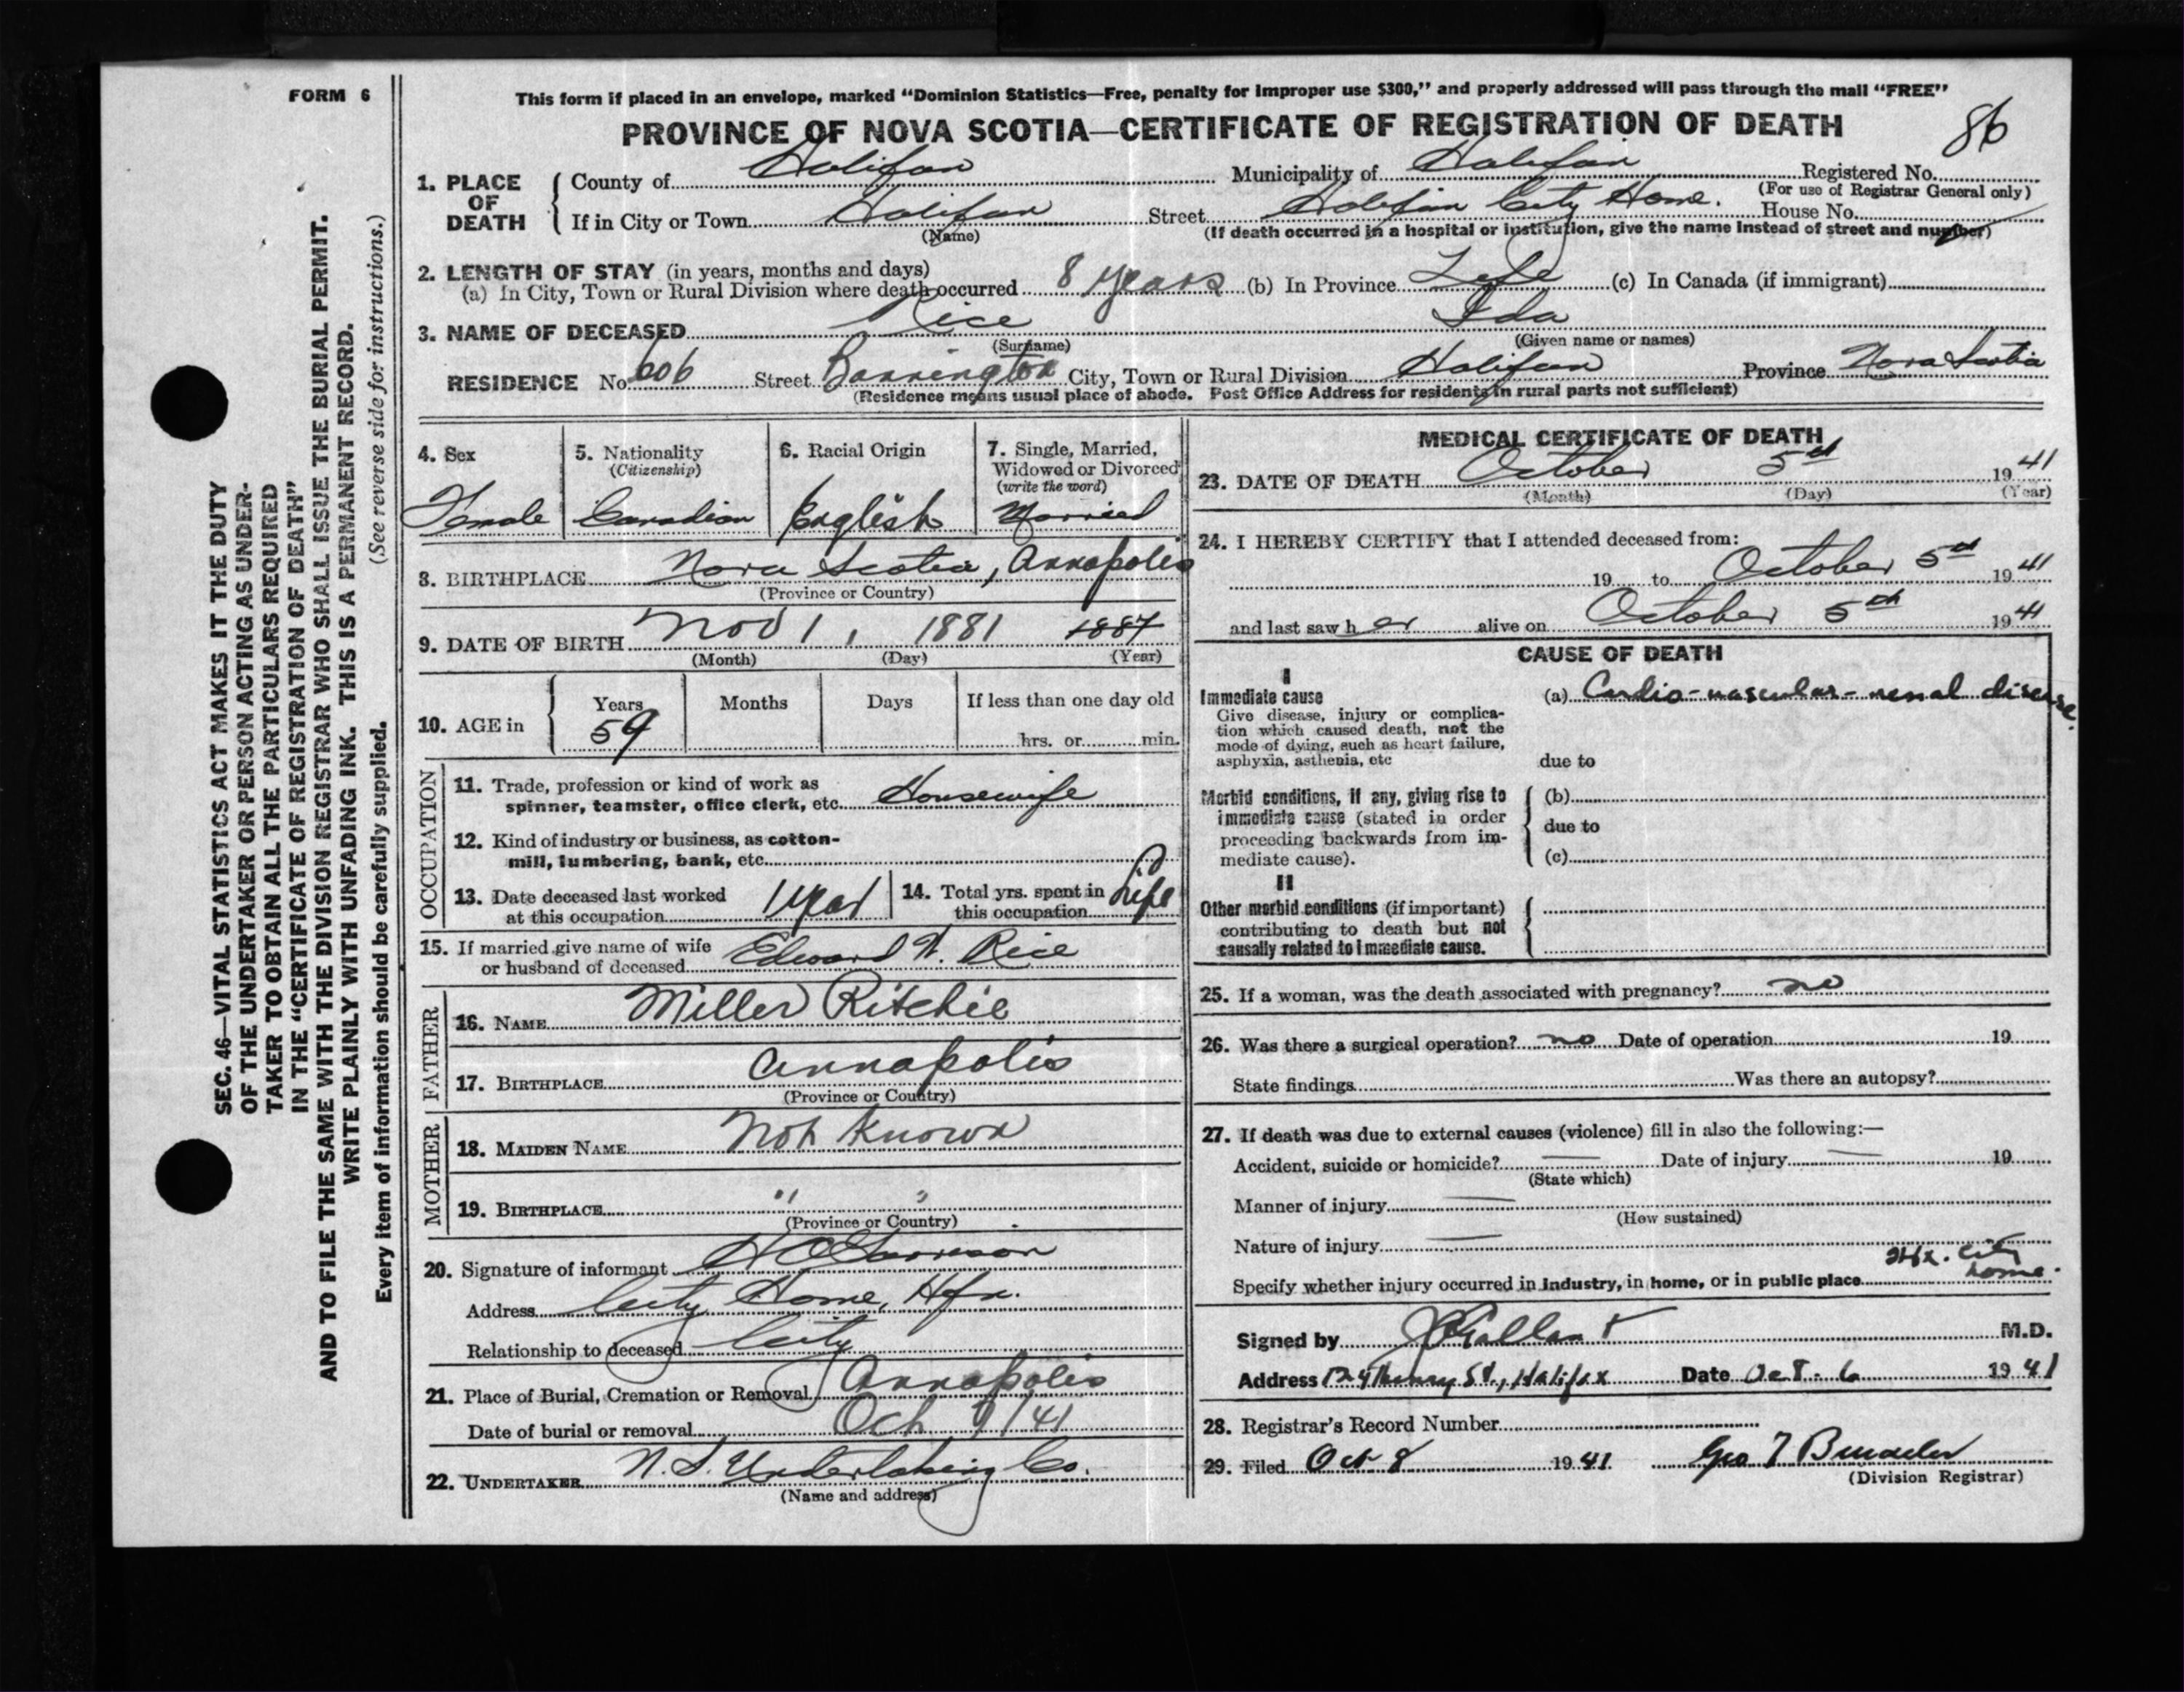 FORM 6
This form if placed in an envelope, marked “Dominion Statistics—Free, penalty for improper use $300,” and properly addressed will pass through the mail “FREE”
PROVINCE OF NOVA SCOTIA—CERTIFICATE OF REGISTRATION OF DEATH
86
1. PLACE OF DEATH
County of Halifax Municipality of Halifax Registered No.
(For use of Registrar General only)
If in City or Town Halifax Street Halifax City Home. House No.
(Name) (If death occurred in a hospital or institution, give the name instead of street and number)
2. LENGTH OF STAY (in years, months and days)
(a) In City, Town or Rural Division where death occurred 8 years (b) In Province Life (c) In Canada (if immigrant)
3. NAME OF DECEASED Rice Ida
(Surname) (Given name or names)
RESIDENCE No. 606 Street Barrington City, Town or Rural Division Halifax Province Nova Scotia
(Residence means usual place of abode. Post Office Address for residents in rural parts not sufficient)
4. Sex
Female
5. Nationality
(Citizenship)
Canadian
6. Racial Origin
English
7. Single, Married,
Widowed or Divorced
(write the word)
Married
8. BIRTHPLACE Nova Scotia, Annapolis
(Province or Country)
9. DATE OF BIRTH Nov 1, 1881 1887
(Month) (Day) (Year)
10. AGE in
Years Months Days If less than one day old
59 hrs. or min.
OCCUPATION
11. Trade, profession or kind of work as
spinner, teamster, office clerk, etc. Housewife
12. Kind of industry or business, as cotton-
mill, lumbering, bank, etc.
13. Date deceased last worked
at this occupation 1 year
14. Total yrs. spent in
this occupation Life
15. If married give name of wife
or husband of deceased Edward W. Rice
FATHER
16. NAME Miller Ritchie
17. BIRTHPLACE Annapolis
(Province or Country)
MOTHER
18. MAIDEN NAME Not Known
19. BIRTHPLACE " "
(Province or Country)
20. Signature of informant
Address City Home, Hfx.
Relationship to deceased City
21. Place of Burial, Cremation or Removal Annapolis
Date of burial or removal Oct 9/41
22. UNDERTAKER N.S. Undertaking Co.
(Name and address)
MEDICAL CERTIFICATE OF DEATH
23. DATE OF DEATH October 5th 1941
(Month) (Day) (Year)
24. I HEREBY CERTIFY that I attended deceased from:
19 to October 5th 1941
and last saw her alive on October 5th 1941
CAUSE OF DEATH
I
Immediate cause
Give disease, injury or complica-
tion which caused death, not the
mode of dying, such as heart failure,
asphyxia, asthenia, etc
(a) Cardio-vascular-renal disease.
due to
Morbid conditions, if any, giving rise to
immediate cause (stated in order
proceeding backwards from im-
mediate cause).
(b)
due to
(c)
II
Other morbid conditions (if important)
contributing to death but not
causally related to immediate cause.
25. If a woman, was the death associated with pregnancy? no
26. Was there a surgical operation? no Date of operation 19
State findings Was there an autopsy?
27. If death was due to external causes (violence) fill in also the following:—
Accident, suicide or homicide? — Date of injury — 19
(State which)
Manner of injury —
(How sustained)
Nature of injury —
Specify whether injury occurred in industry, in home, or in public place Hfx. City Home.
Signed by Gallant M.D.
Address Henry St., Halifax Date Oct. 6 1941
28. Registrar's Record Number
29. Filed Oct 8 1941. Geo
(Division Registrar)
SEC. 46—VITAL STATISTICS ACT MAKES IT THE DUTY
OF THE UNDERTAKER OR PERSON ACTING AS UNDER-
TAKER TO OBTAIN ALL THE PARTICULARS REQUIRED
IN THE “CERTIFICATE OF REGISTRATION OF DEATH”
AND TO FILE THE SAME WITH THE DIVISION REGISTRAR WHO SHALL ISSUE THE BURIAL PERMIT.
WRITE PLAINLY WITH UNFADING INK. THIS IS A PERMANENT RECORD.
(See reverse side for instructions.)
Every item of information should be carefully supplied.